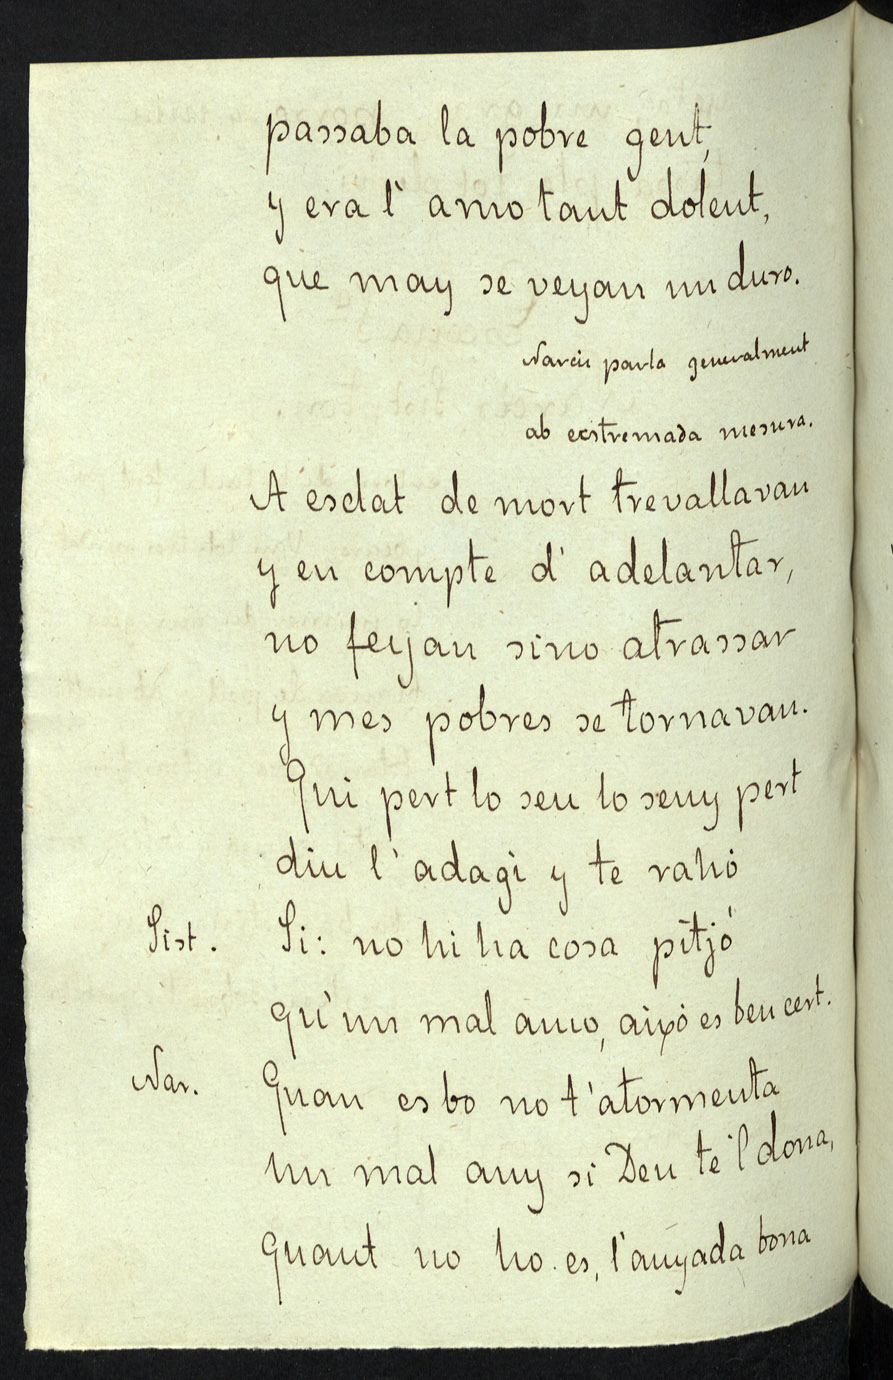 passaba la pobre gent,
y era l' amo tant dolent,
que may se veyan un duro.
Narcis parla generalment
ab extremada mesura.
A esclat de mort trevallavan
y en compte d' adelantar,
no feyan sino atrassar
y mes pobres se tornavan.
Qui pert lo seu lo seny pert
diu l' adagi y te rahó
Sist. Si: no hi ha cosa pitjó
qu' un mal amo, aixó es ben cert.
Nar. Quan es bo no t' atormenta
un mal any si Deu te 'l dona,
quant no ho es, l' anyada bona